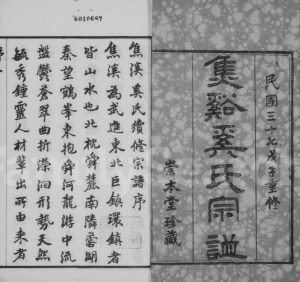 民國三十七戊子重修
焦谿奚氏宗譜
崇本堂珍藏
焦溪奚氏續修宗譜序
焦溪為武進東北巨鎮環鎮者
皆山水也北枕舜麓南隣蓉湖
秦望鶴峯東抱舜河龍游中流
盤鬱蒼翠曲折瀠洄形勢天然
毓秀鍾靈人材輩出所由來者
序一